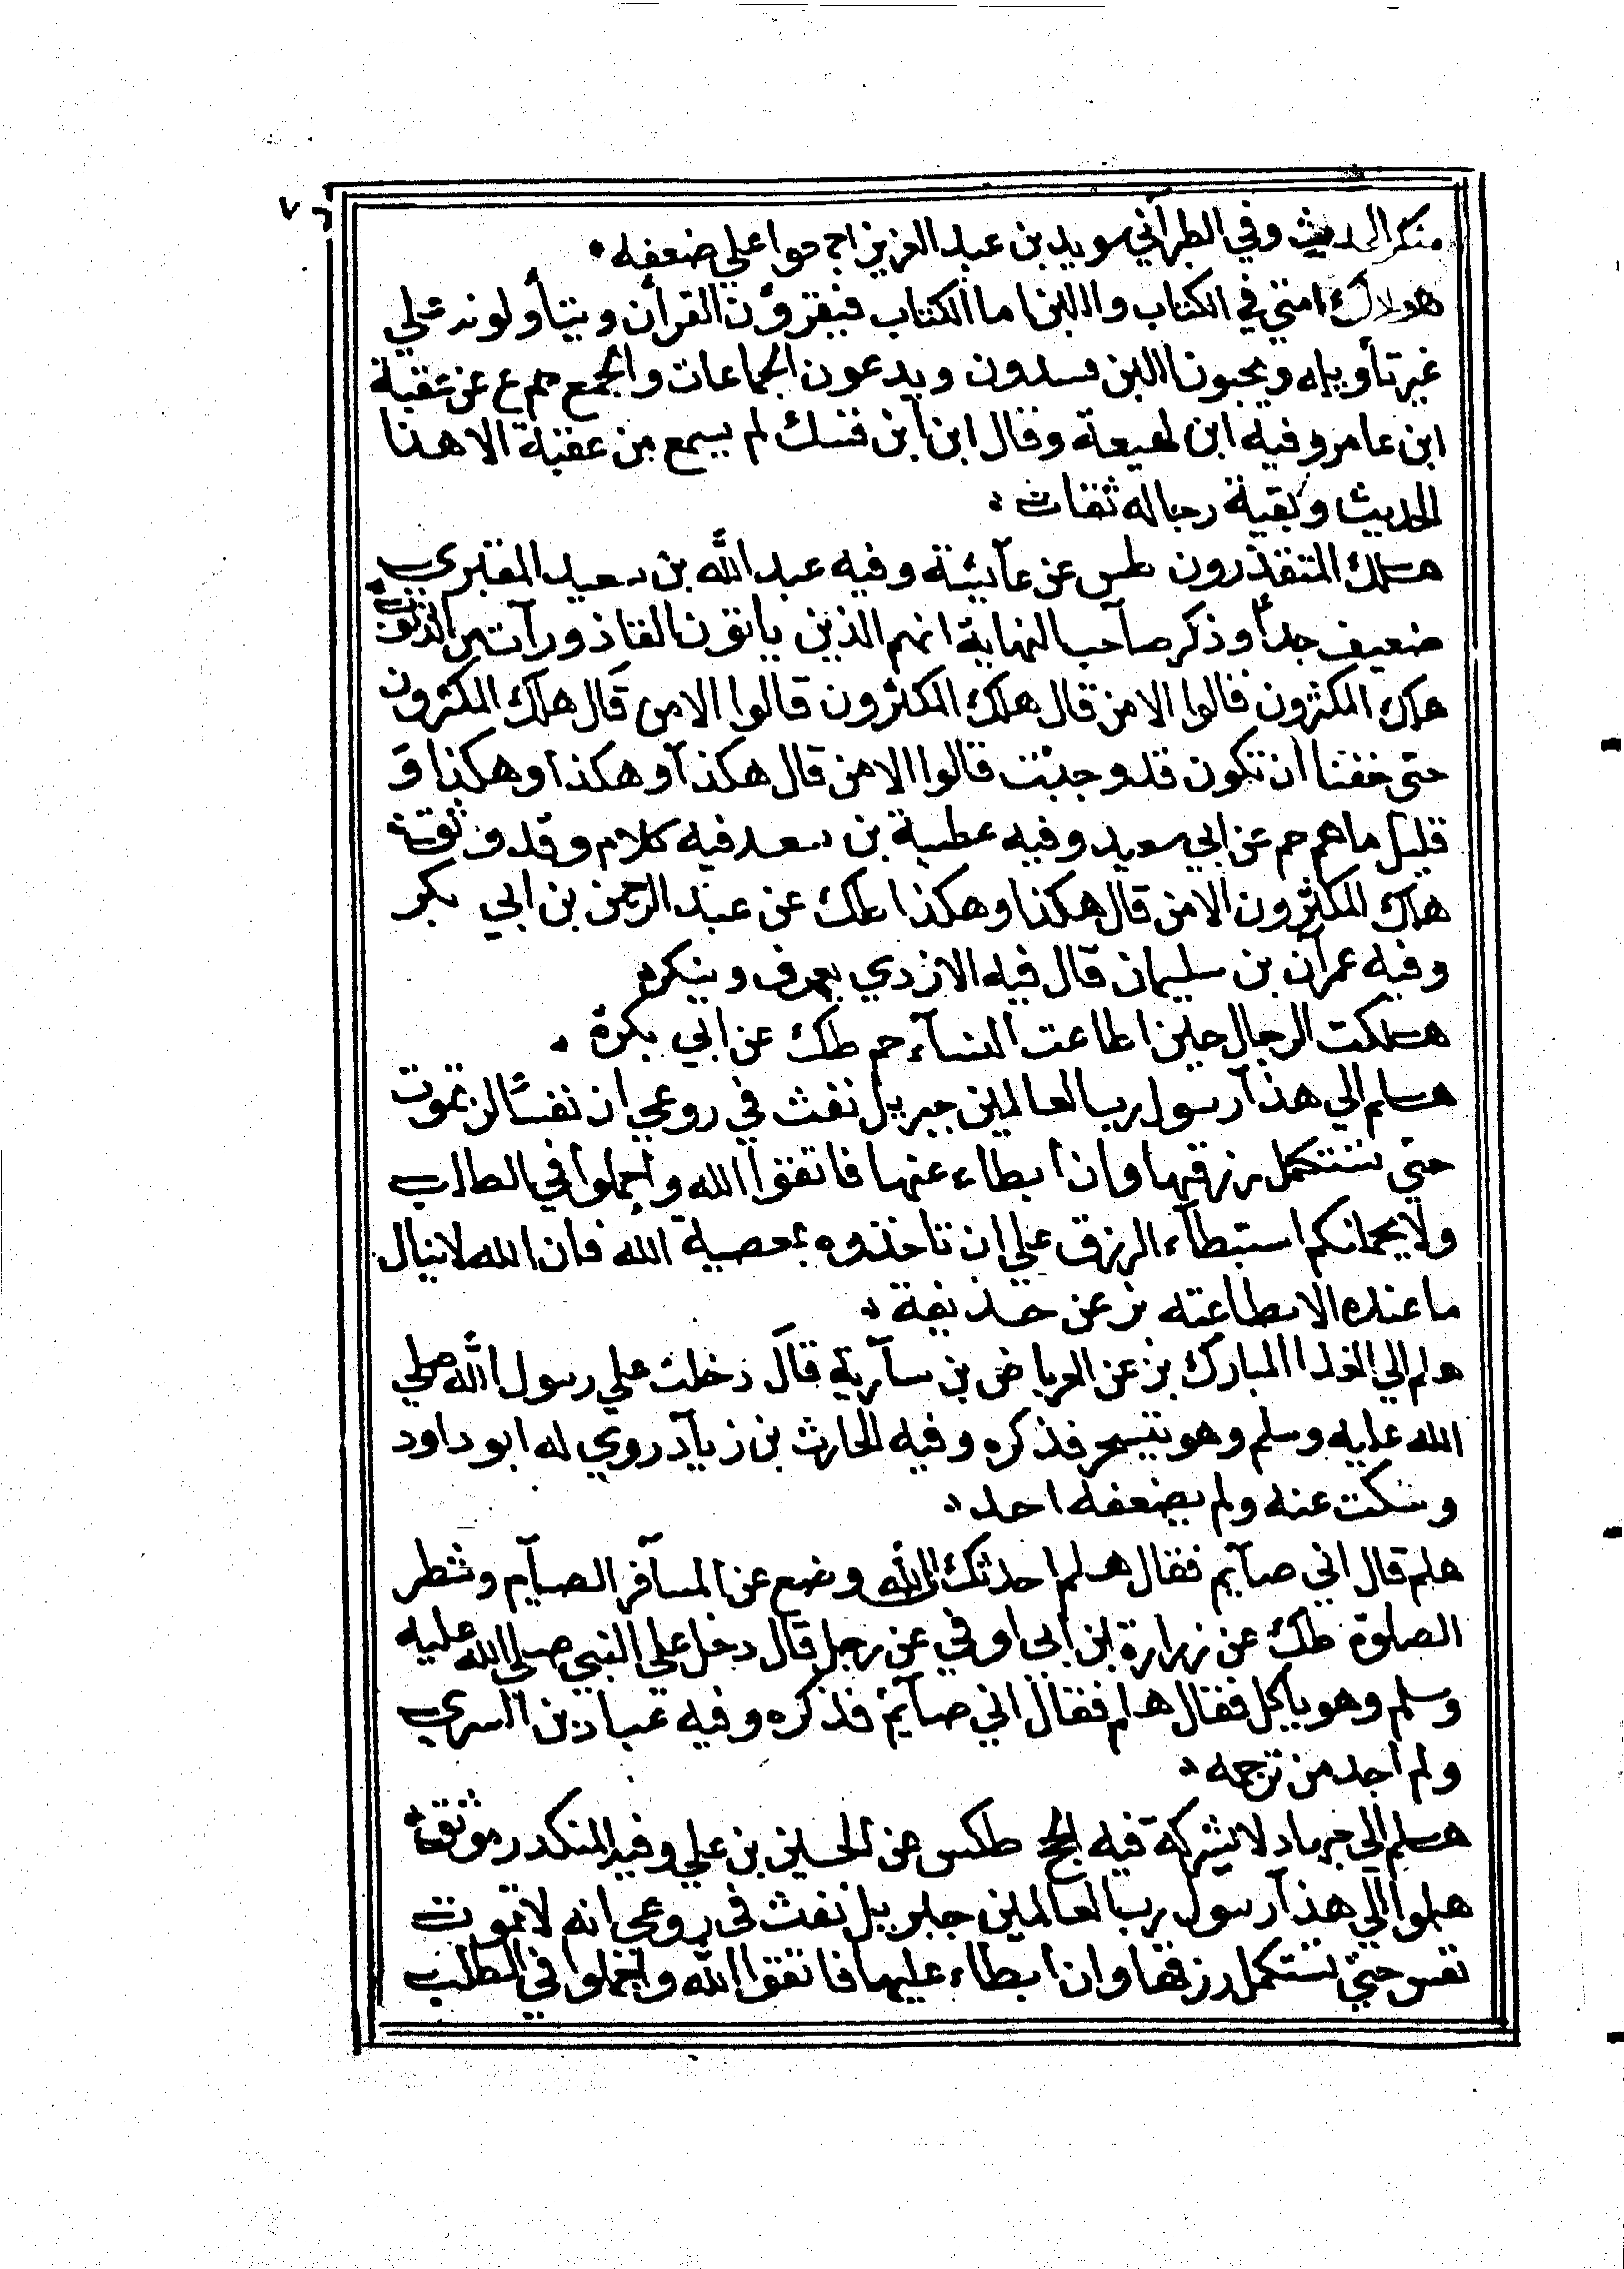 ٧
منكر الحديث وفي الطبراني سويد بن عبد العزيز اجمعوا علي ضعفه
هلاك امتي في الكتاب واللبن اما الكتاب فيقرؤن القرأن ويتأولونه علي
غير تأويله ويحبون اللبن فيبدون ويدعون الجماعات والجمع حم ع عن عقبة
ابن عامر وفيه ابن لهيعة وقال ابن لم يسمع من عقبة الا هذا
الحديث وبقية رجاله ثقات
هلك المتقذرون طس عن عآئشة وفيه عبد الله بن سعيد المقبري
ضعيف جداً وذكر صاحب النهاية انهم الذين ياتون القاذورات
هلك المكثرون قالوا الا من قال هلك المكثرون قالوا الا من قال هلك المكثرون
حتى خفنا ان تكون قد وجبت قالوا الا من قال هكذا وهكذا وهكذا و
قليل ما هم حم عن ابي سعيد وفيه عطية بن سعد فيه كلام وقد وثق
هلك المكثرون الا من قال هكذا وهكذا طك عن عبد الرحمن بن ابي بكر
وفيه عمران بن سليمان قال فيه الازدي يعرف وينكر
هلكت الرجال حين اطاعت النسآء حم طك عن ابي بكرة
هلم الي هذا رسول رب العالمين جبريل نفث في روعي ان نفسًا لن تموت
حتي تستكمل رزقها وان ابطاء عنها فاتقوا الله واجملوا في الطلب
ولا يحملنكم استبطآء الرزق علي ان تاخذوه بمعصية الله فان الله لا ينال
ما عنده الا بطاعته بز عن حذيفة
هلم الي الغدا المبارك بز عن العرباض بن سآرية قال دخلت علي رسول الله صلي
الله عليه وسلم وهو يتسحر فذكره وفيه الحارث بن زياد روي له ابو داود
وسكت عنه ولم يضعفه احد
هلم قال اني صآيم فقال هلم احدثك ان الله وضع عن المسافر الصيام وشطر
الصلوة طك عن زرارة ابن ابي اوفي عن رجل قال دخل علي النبي صلي الله عليه
وسلم وهو ياكل فقال هلم فقال اني صآيم فذكره وفيه عباد بن السري
ولم اجد من ترجمه
هلم الى جهاد لا شوكة فيه الحج طكس عن الحسين بن علي وفيه المنكدر موثق
هلموا الي هذا رسول رب العالمين جبريل نفث في روعي انه لا تموت
نفس حتي تستكمل رزقها وان ابطاء عليها فاتقوا الله واجملوا في الطلب